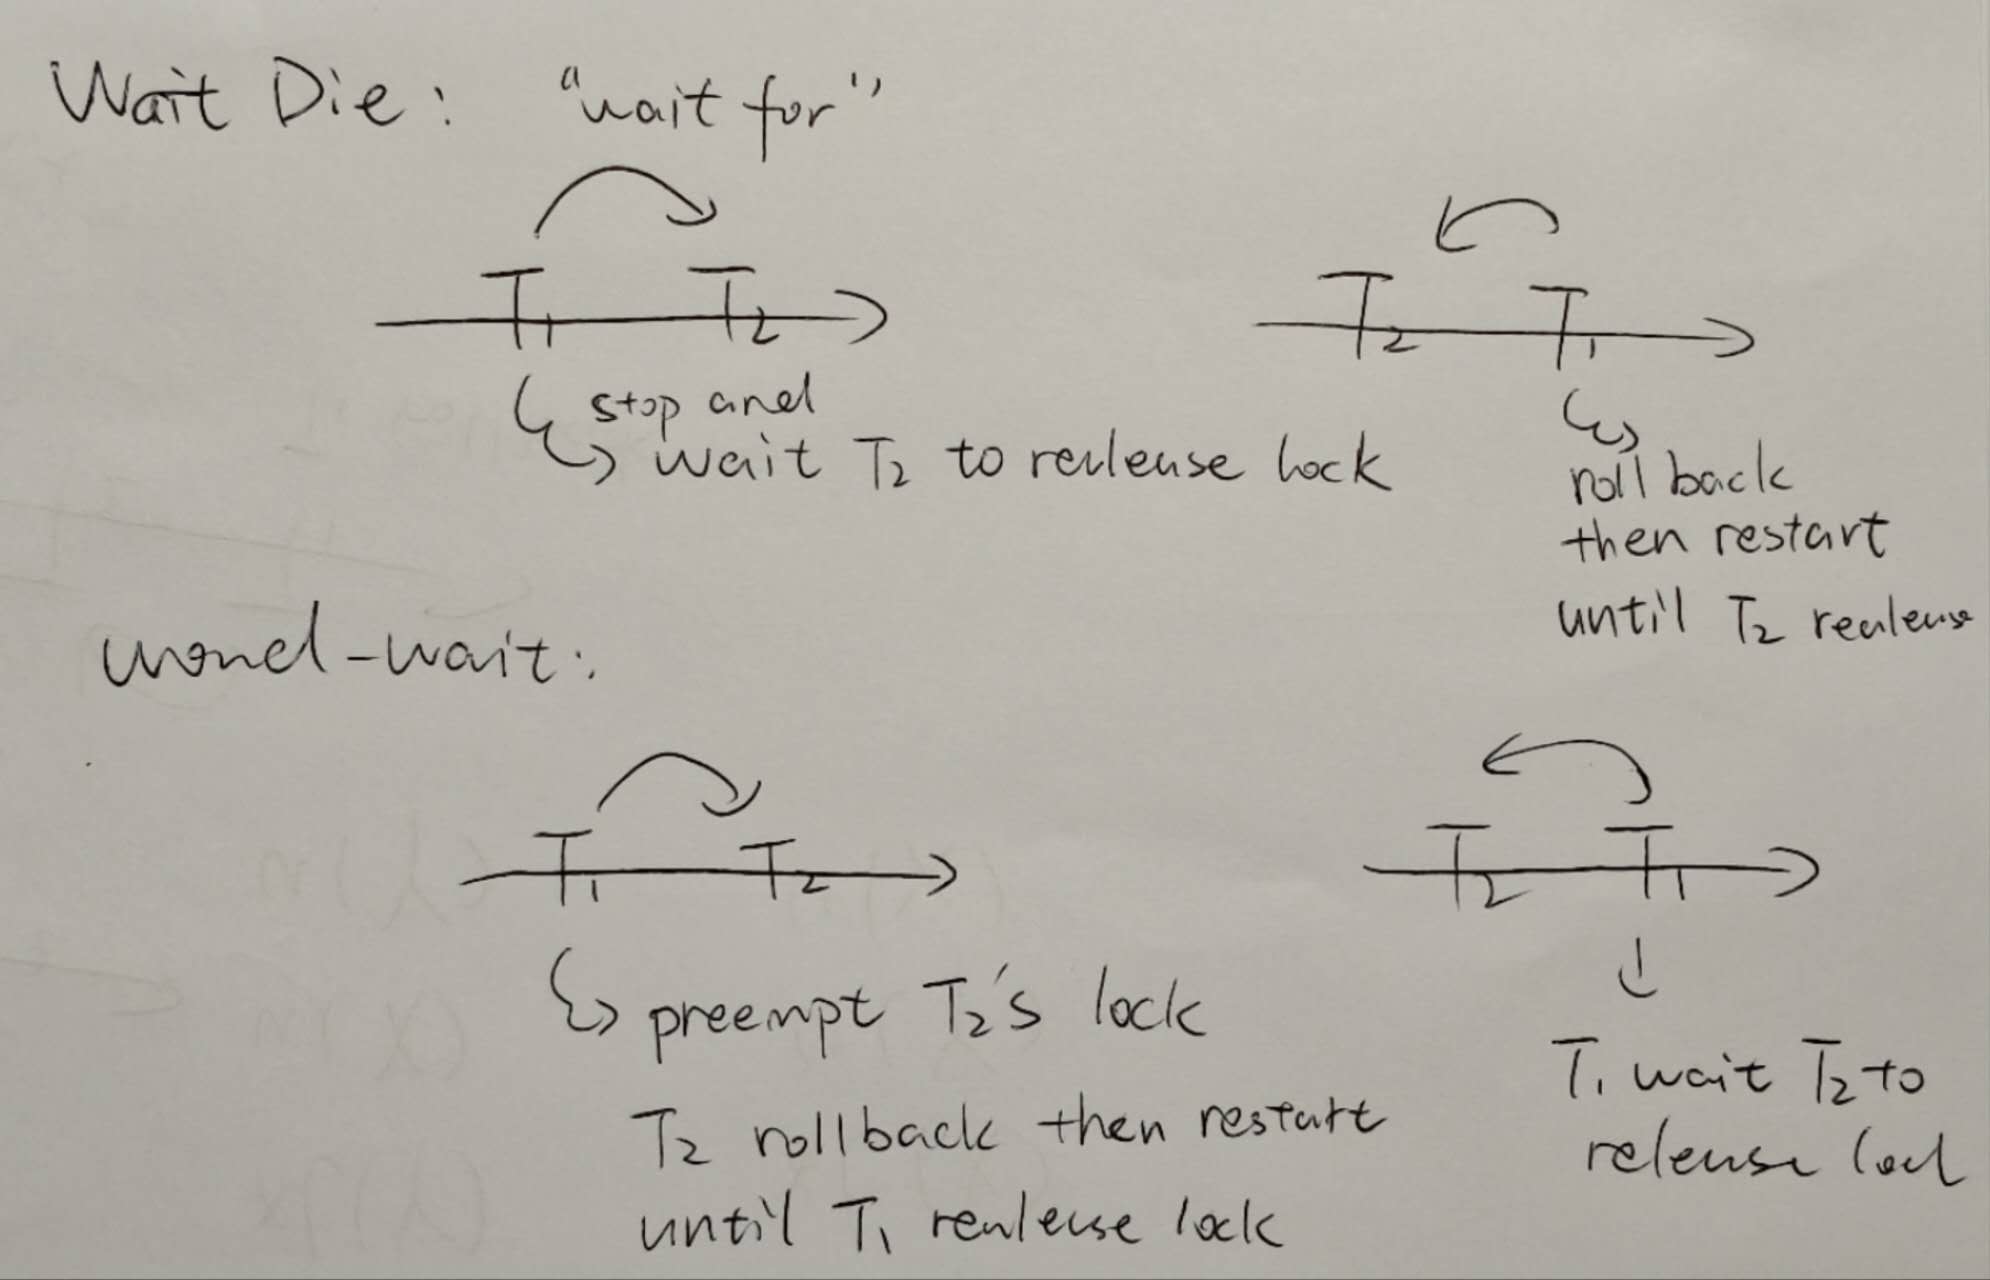 Wait Die: "wait for"
T1 T2
stop and
wait T2 to reulease lock
T2 T1
roll back
then restart
until T2 realease
wond-wait:
T1 T2
preempt T2's lock
T2 rollback then restart
until T1 realease lock
T2 T1
T1 wait T2 to
release lock